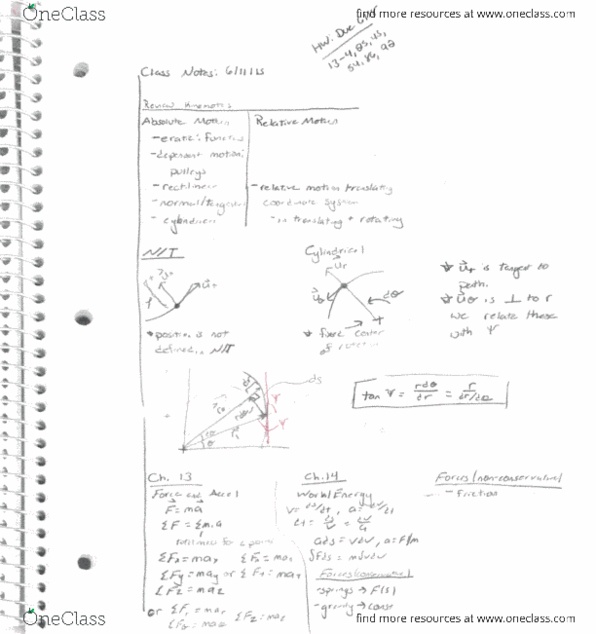 OneClass
find more resources at www.oneclass.com
HW: Due
13-4, 85,
Class Notes: 6/11/15
Review Kinematics
Absolute Motion
Relative Motion
-eratic: Functions
-dependent motion:
pulleys
-rectilinear
-normal/tangential
-cylindrical
-relative motion translating
coordinate system
-in translating + rotating
N/T
Cylindrical
position is not
defined N/T
fixed center
of
is tangent to
path.
uθ is ⊥ to r
we relate these
with ψ
ds
tan ψ = rdθ/dr = r/dr/dθ
Ch. 13
Force and Accel
F = ma
ΣF = Σm.a
ΣFx = max
ΣFy = may or
ΣFz = maz
or
Ch. 14
Work/Energy
v = ds/dt, a = dv/dt
dt = ds/v = dv/a
ads = vdv, a = F/m
∫Fds = m∫vdv
Forces/conservative
-springs → F(s)
-gravity → const
Forces/non-conservative
- Friction
OneClass
find more resources at www.oneclass.com